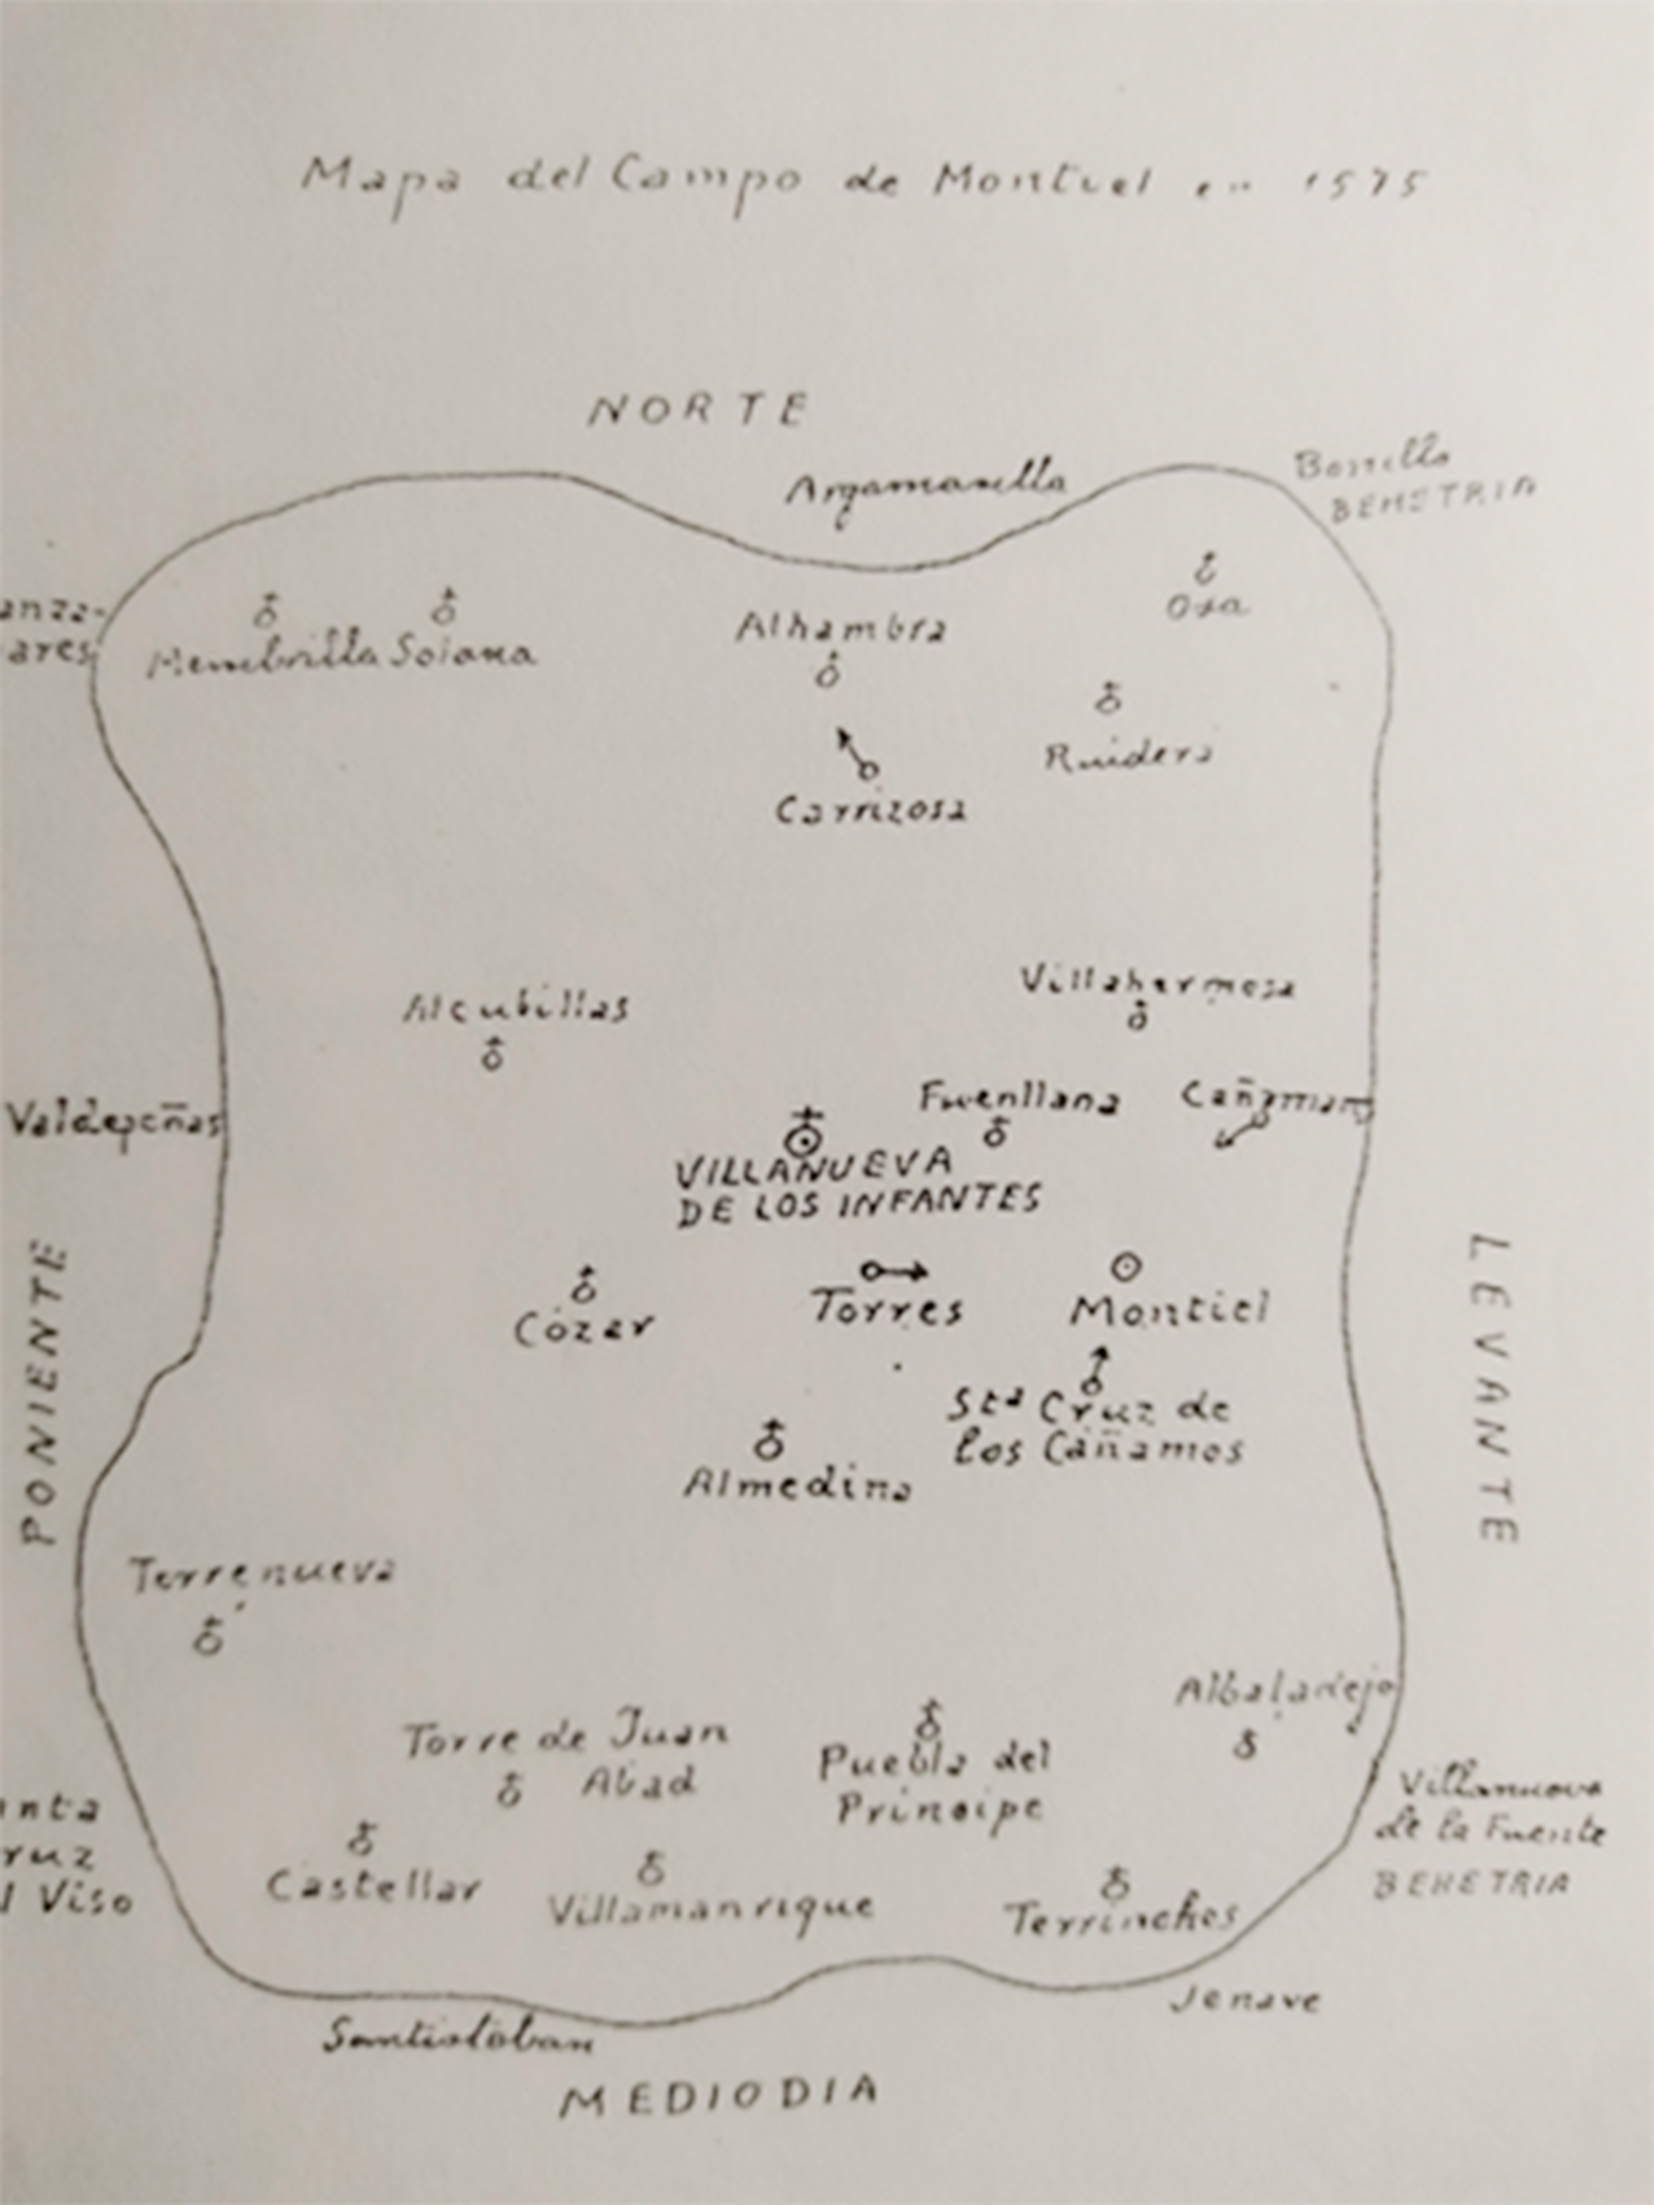 Mapa del Campo de Montiel en 1575
NORTE
Argamasilla
Bonillo
BEHETRIA
anza-
ares
Membrilla Solana
Alhambra
Osa
Ruidera
Carrizosa
Alcubillas
Villahermosa
Valdepeñas
Fuenllana
Cañamar
VILLANUEVA
DE LOS INFANTES
PONIENTE
LEVANTE
Cózar
Torres
Montiel
Sta Cruz de
los Cáñamos
Almedina
Torrenueva
Albaladejo
Torre de Juan
Abad
Puebla del
Principe
Villanueva
de la Fuente
BEHETRIA
anta
ruz
l Viso
Castellar
Villamanrique
Terrinches
Santisteban
Jenave
MEDIODIA